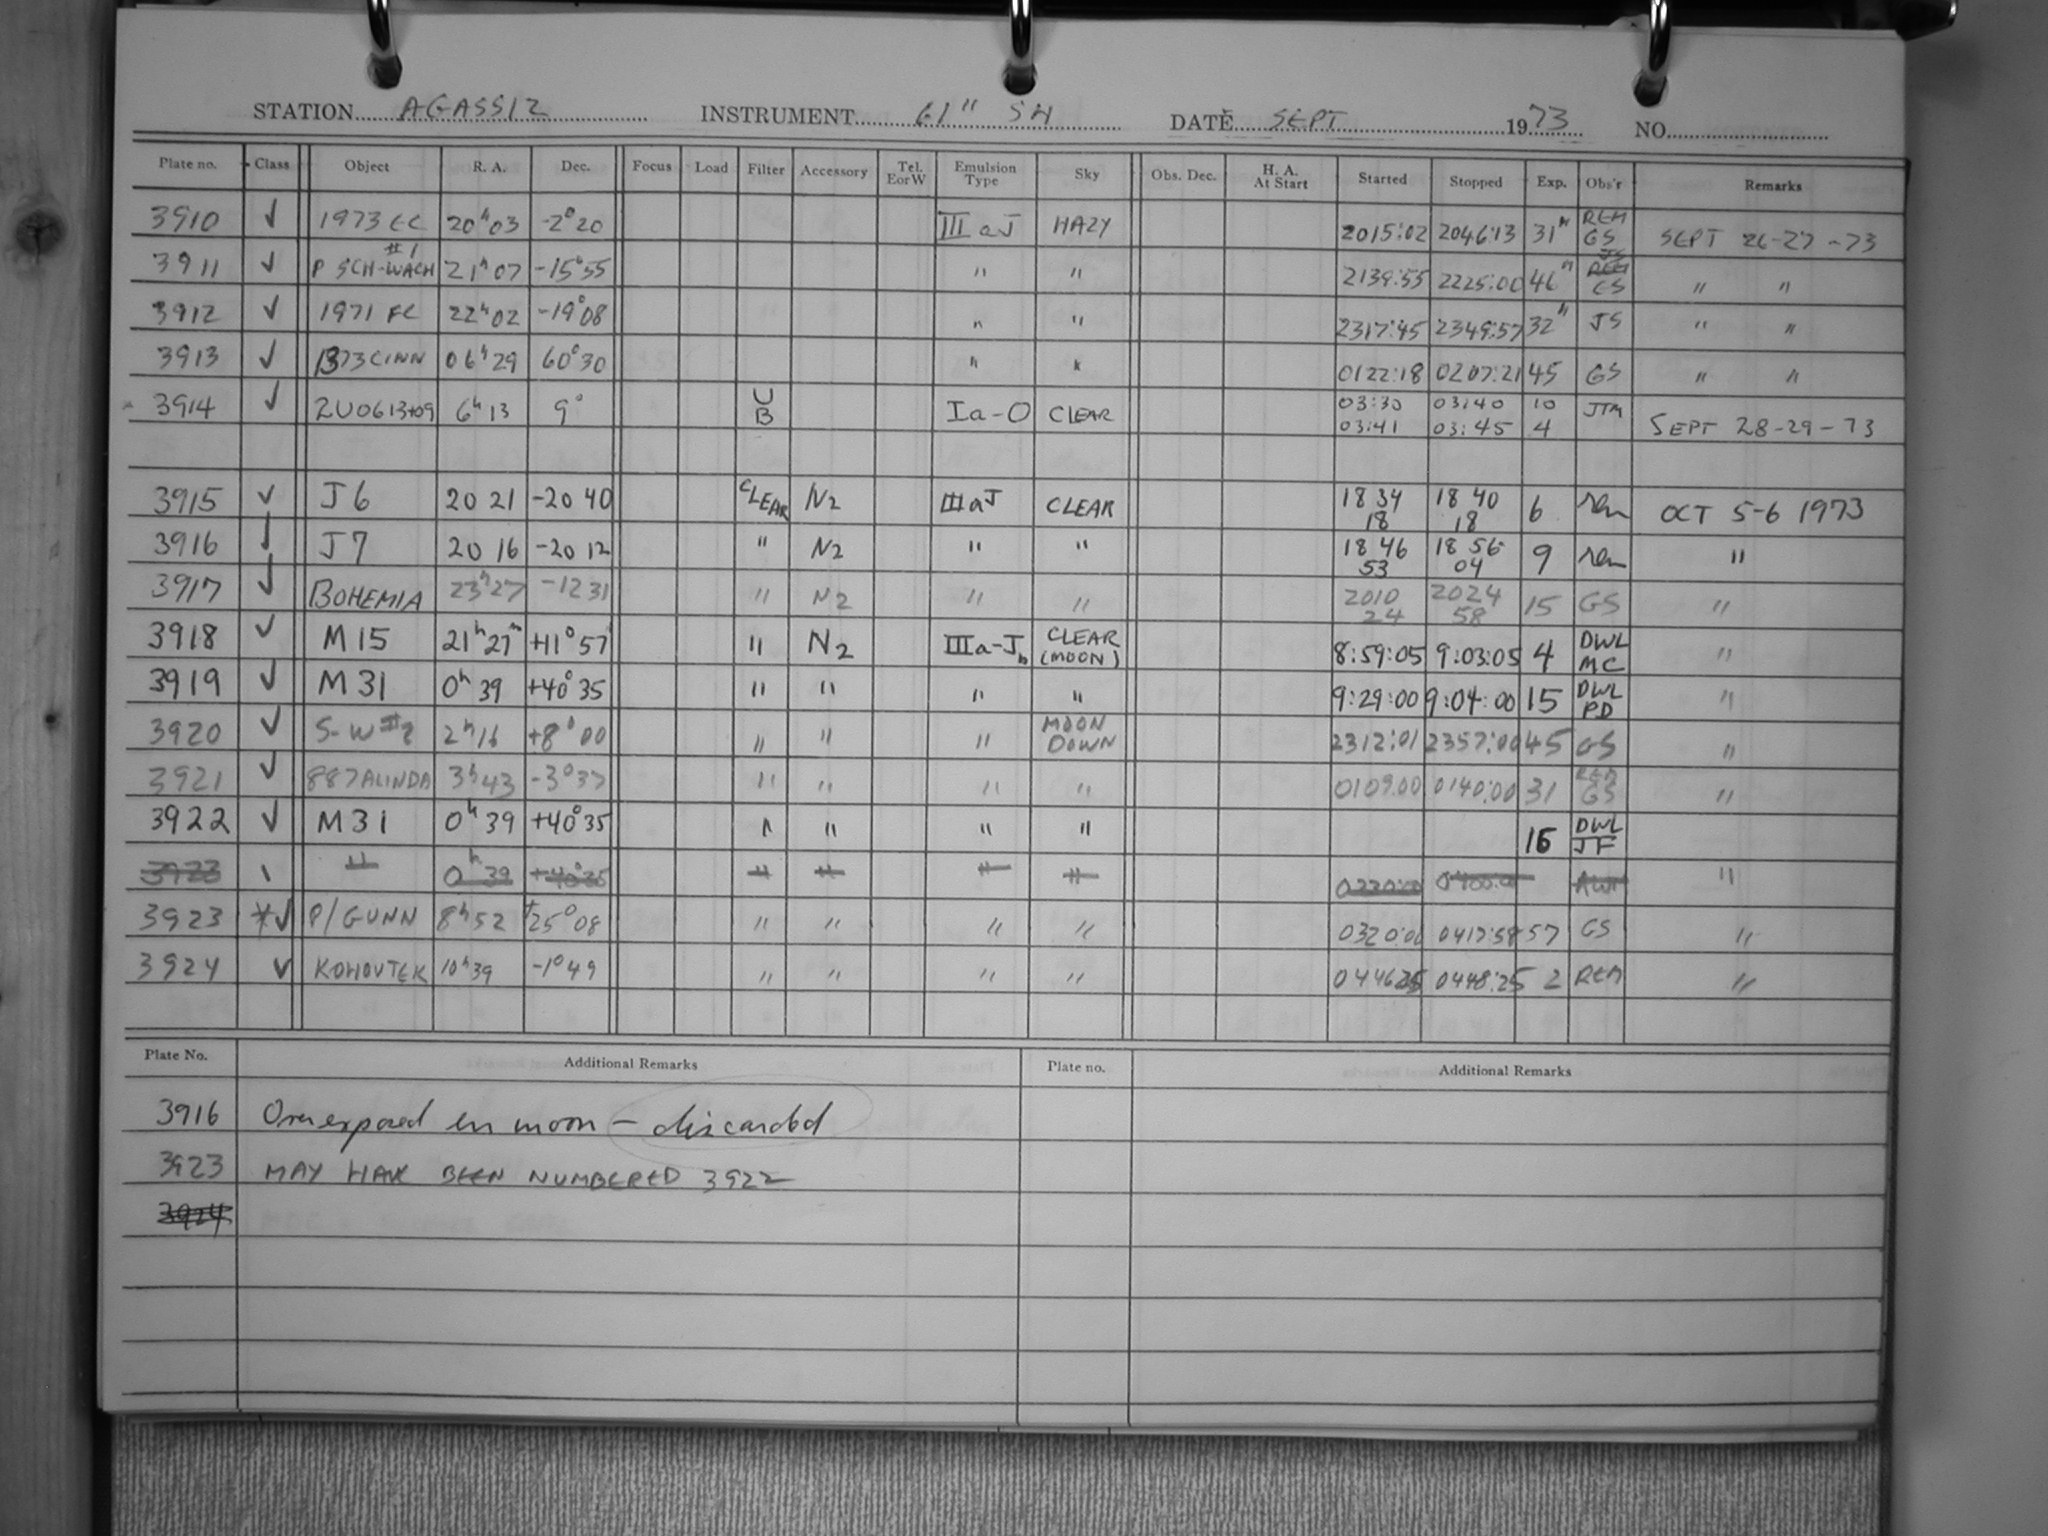 STATION AGASSIZ INSTRUMENT 61" SH DATE SEPT 1973 NO.
Plate no. Class Object R. A. Dec. Focus Load Filter Accessory Tel. EorW Emulsion Type Sky Obs. Dec. H. A. At Start Started Stopped Exp. Obs'r Remarks
3910 ✓ 1973 EC 20h 03 -2° 20 III aJ HAZY 2015:02 2046:13 31m REM GS SEPT 26-27-73
3911 ✓ P SCH-WACH #1 21h 07 -15° 55 " " 2139:55 2225:00 46m JS GS " "
3912 ✓ 1971 FC 22h 02 -19° 08 " " 2317:45 2349:57 32m JS " "
3913 ✓ 06h 29 60° 30 " " 0122:18 0207:21 45 GS " "
3914 ✓ 2U0613+09 6h 13 9° U B Ia-O CLEAR 03:30 03:40 10 JTM
03:41 03:45 4 SEPT 28-29-73
3915 ✓ J6 20 21 -20 40 CLEAR N2 IIIaJ CLEAR 18 34 18 18 40 18 6 rem OCT 5-6 1973
3916 ✓ J7 20 16 -20 12 " N2 " " 18 46 53 18 56 04 9 rem "
3917 ✓ BOHEMIA 23h 27 -12 31 " N2 " " 2010 24 2024 58 15 GS "
3918 ✓ M15 21h 27m +11° 57' " N2 IIIa-Jb CLEAR (MOON) 8:59:05 9:03:05 4 DWL MC "
3919 ✓ M31 0h 39 +40° 35 " " " " 9:29:00 9:04:00 15 DWL PD "
3920 ✓ S-W#2 2h 16 +8° 00 " " " MOON DOWN 2312:01 2357:00 45 GS "
3921 ✓ 887ALINDA 3h 43 -3° 37 " " " " 0109:00 0140:00 31 REM GS "
3922 ✓ M31 0h 39 +40° 35 " " " " 16 DWL JF
3923 " 0h 39 +40° 35 " " " " 0230:00 0400:00 "
3923 *✓ P/GUNN 8h 52 +25° 08 " " " " 0320:00 0417:58 57 GS "
3924 ✓ KOHOUTEK 10h 39 -1° 49 " " " " 0446:25 0448:25 2 REM "
Plate No. Additional Remarks Plate no. Additional Remarks
3916 Overexposed in moon - discarded
3923 MAY HAVE BEEN NUMBERED 3922
3924